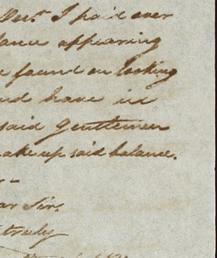 I paid over
lance appearing
found on looking
and have in
said Gentlemen
make up said balance.
ar Sir,
truly